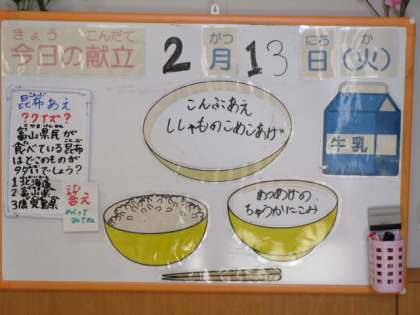 きょう こんだて
今日の献立
2 がつ 月 13 にち 日 か (火)
昆布あえ
?クイズ?
富山県民が
食べている昆布
はどこのものが
多いでしょう?
1北海道
2富山県
3鹿児島県
答え
めくって
みてね
こんぶあえ
ししゃものこめこあげ
あつあげの
ちゅうかにこみ
牛乳